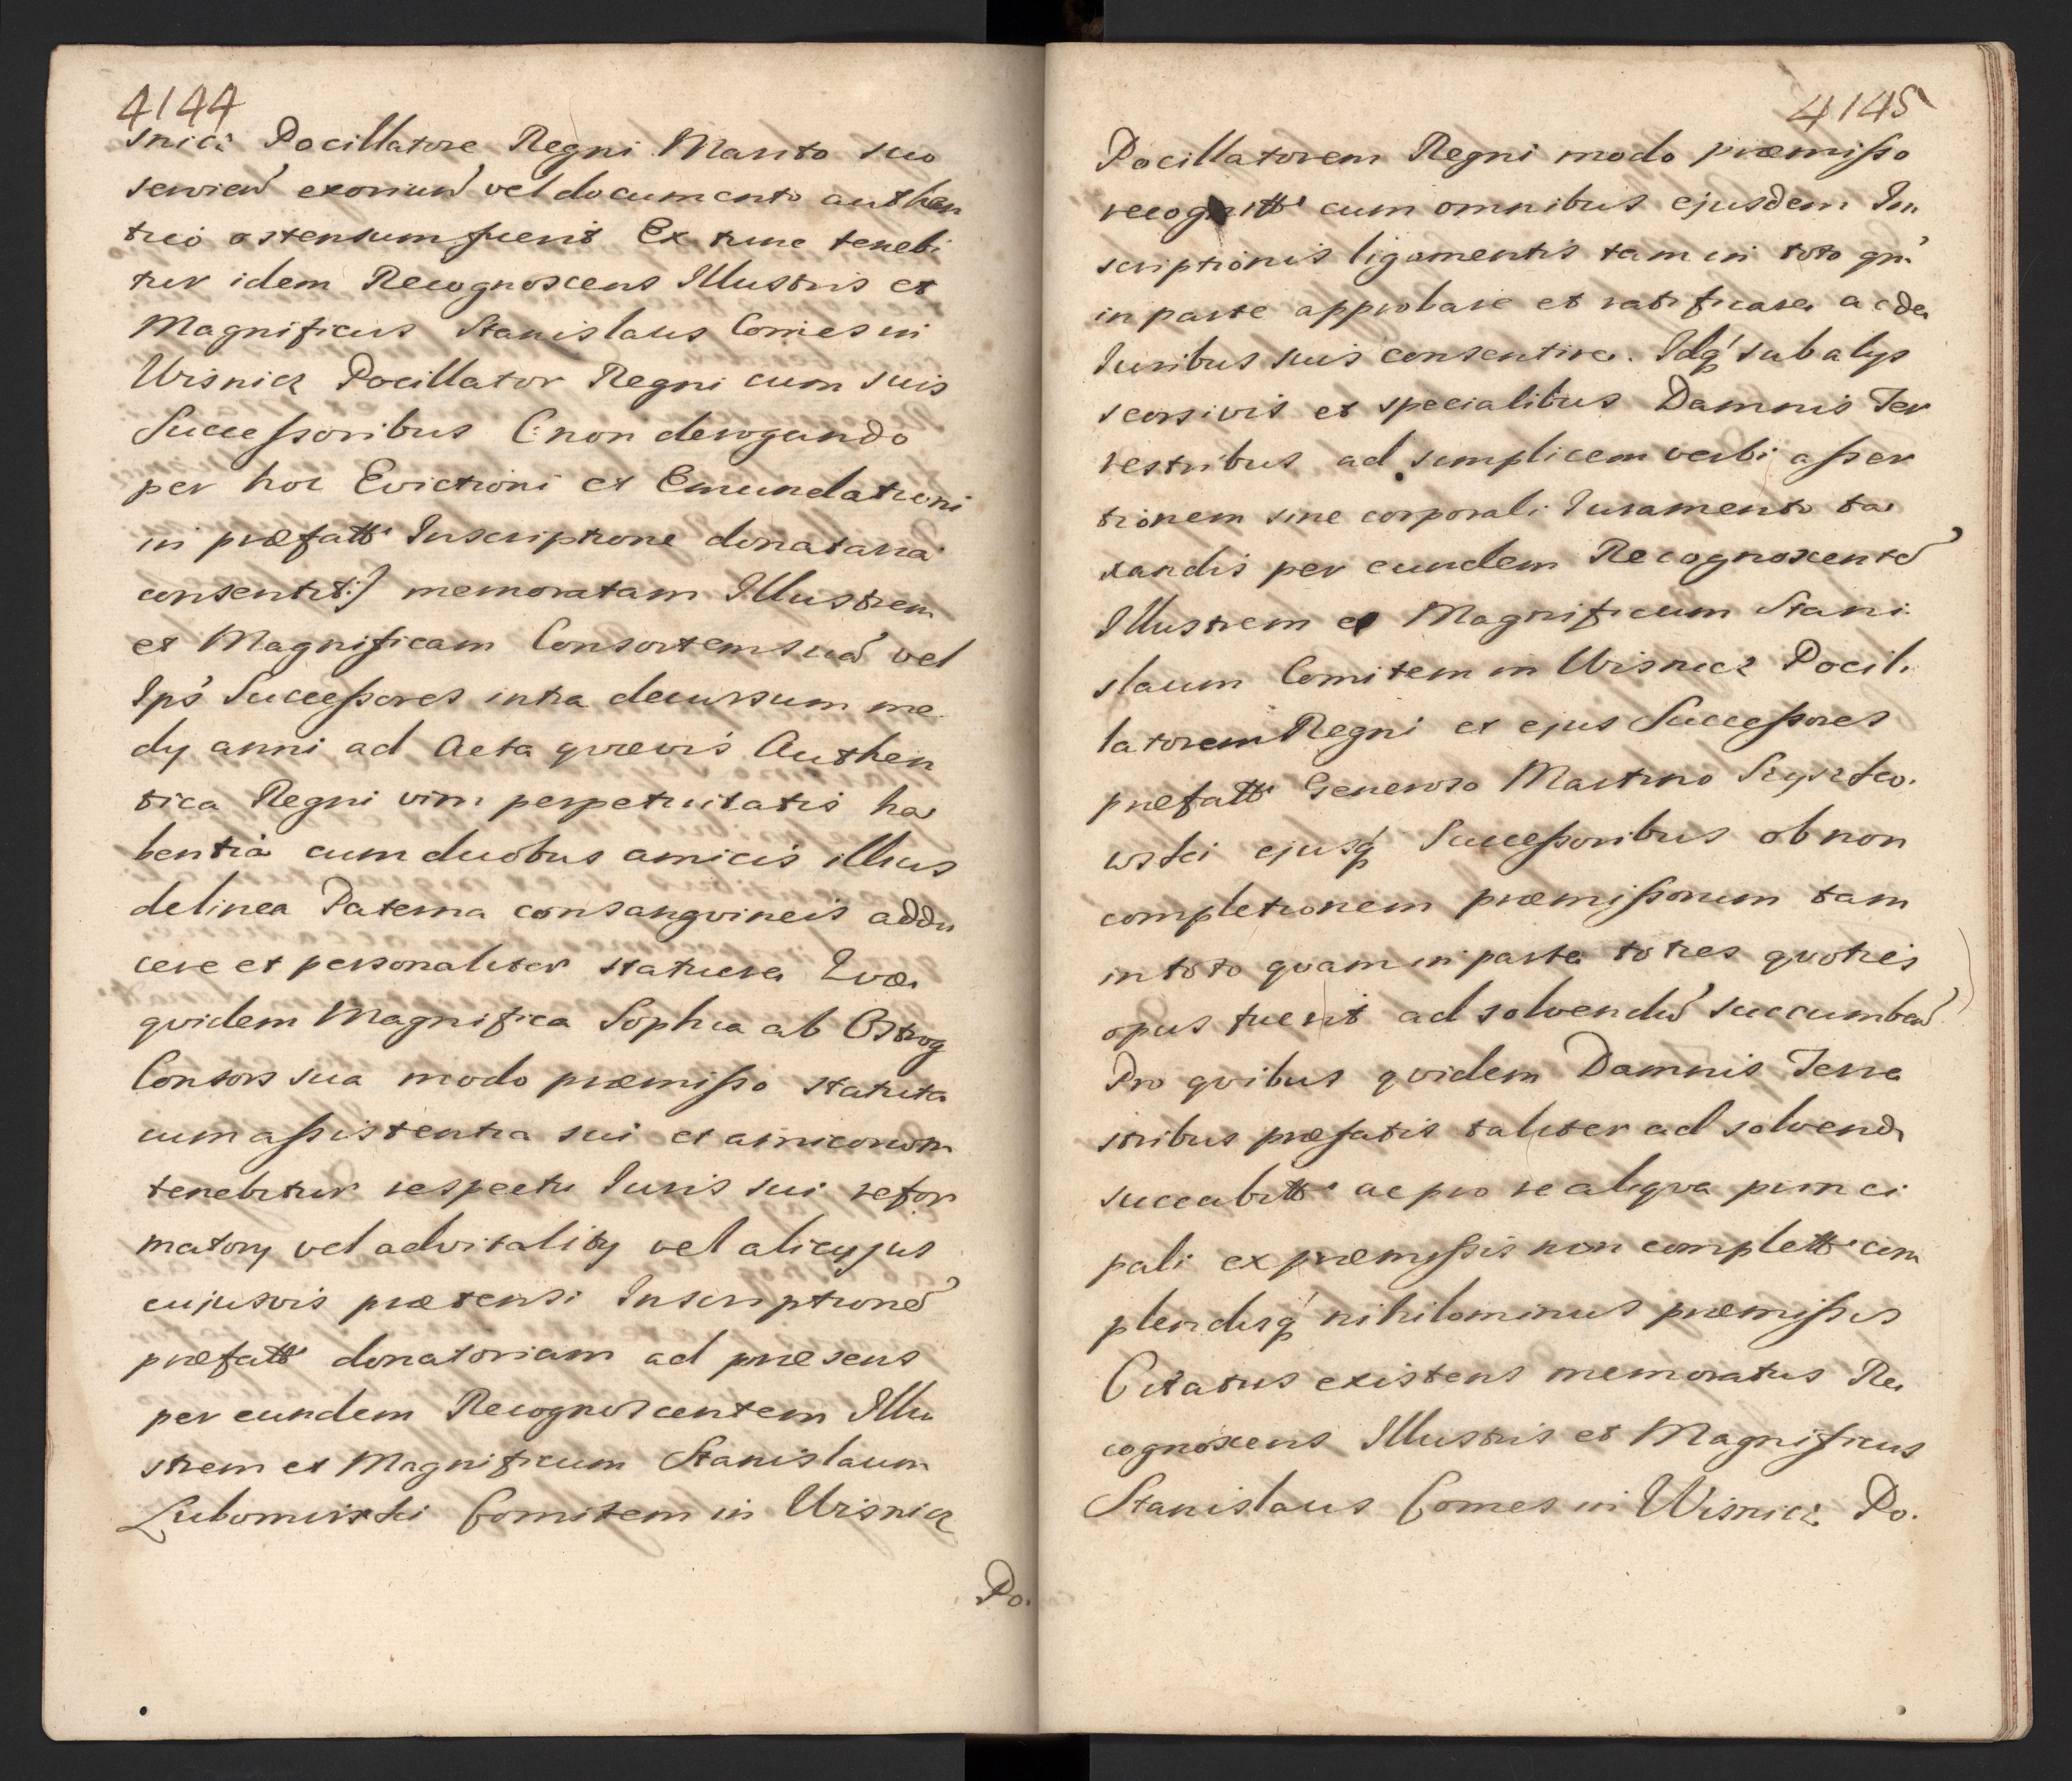 4144
snicz Pocillatore Regni Marito suo
servien exoriun vel documento authen
tico ostensum fuerit Ex tunc tenebi
tur idem Recognoscens Illustris et
Magnificus Stanislaus Comes in
Wisnicz Pocillator Regni cum suis
Successoribus (:non derogando
per hoc Evictioni et Emundationi
in præfatt Inscriptione donataria
consentit:) memoratam Illustrem
et Magnificam Consortem sua vel
Ips Successores intra decursum me
dy anni ad Acta quævis Authen
tica Regni vim perpetuitatis ha
bentia cum duobus amicis illius
delinea Paterna consangvineis addu
cere et personaliter statuere Qvæ
qvidem Magnifica Sophia ab Ostrog
Consors sua modo præmisso statuta
cum assistentia sui et amicorum
tenebitur respectu Juris sui refor
matory vel advitality vel alicujus
cujusvis prætensi Inscriptione
præfatt donatoriam ad præsens
per eundem Recognoscentem Illu
strem et Magnificum Stanislaum
Lubomirski Comitem in Wisnicz
Po.
4145
Pocillatorem Regni modo præmisso
recognitt cum omnibus ejusdem In
scriptionis ligamentis tam in toto qm
in parte approbare et ratificare acde
Juribus suis consentire. Idq sub alys
seorsivis et specialibus Damnis Ter
restribus ad simplicem verbi asser
tionem sine corporali Juramento ta
xandis per eundem Recognoscente
Illustrem et Magnificum Stani
slaum Comitem in Wisnicz Pocil
latorem Regni et ejus Successores
præfatt Generoso Martino
wski ejusq Successoribus ob non
completionem præmissorum tam
in toto qvam in parte toties qvoties
opus fuerit ad solvendu succumben
Pro qvibus qvidem Damnis Terre
stribus præfatis taliter ad solvend
succubitt ac pro re aliqva princi
pali ex præmissis non complett com
plendisq nihilominus præmissis
Citatus existens memoratus Re
cognoscens Illustris et Magnificus
Stanislaus Comes in Wisnicz Po.